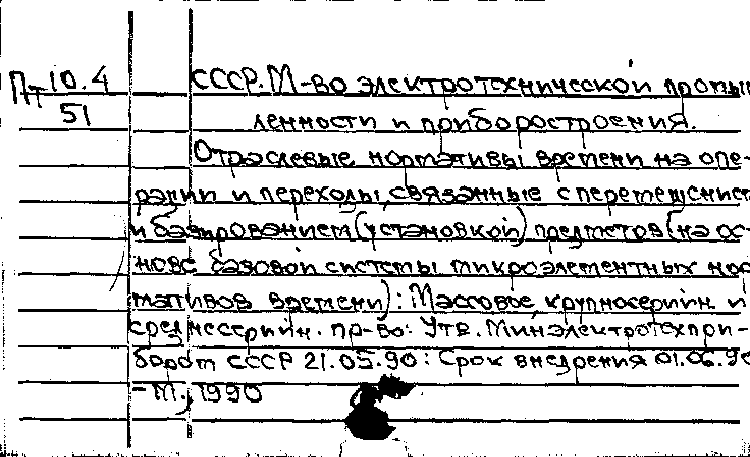 Пт 10.4
51
СССР. М-во электротехнической промыш
ленности и приборостроения.
Отраслевые нормативы времени на опе-
рации и переходы, связанные с перемещением
и базированием (установкой) предметов (на ос-
нове базовой системы микроэлементных нор
мативов времени): Массовое, крупносерийн. и
среднесерийн. пр-во: Утв. Минэлектротехпри-
бором СССР 21.05.90: Срок внедрения 01.06.90
- М., 1990